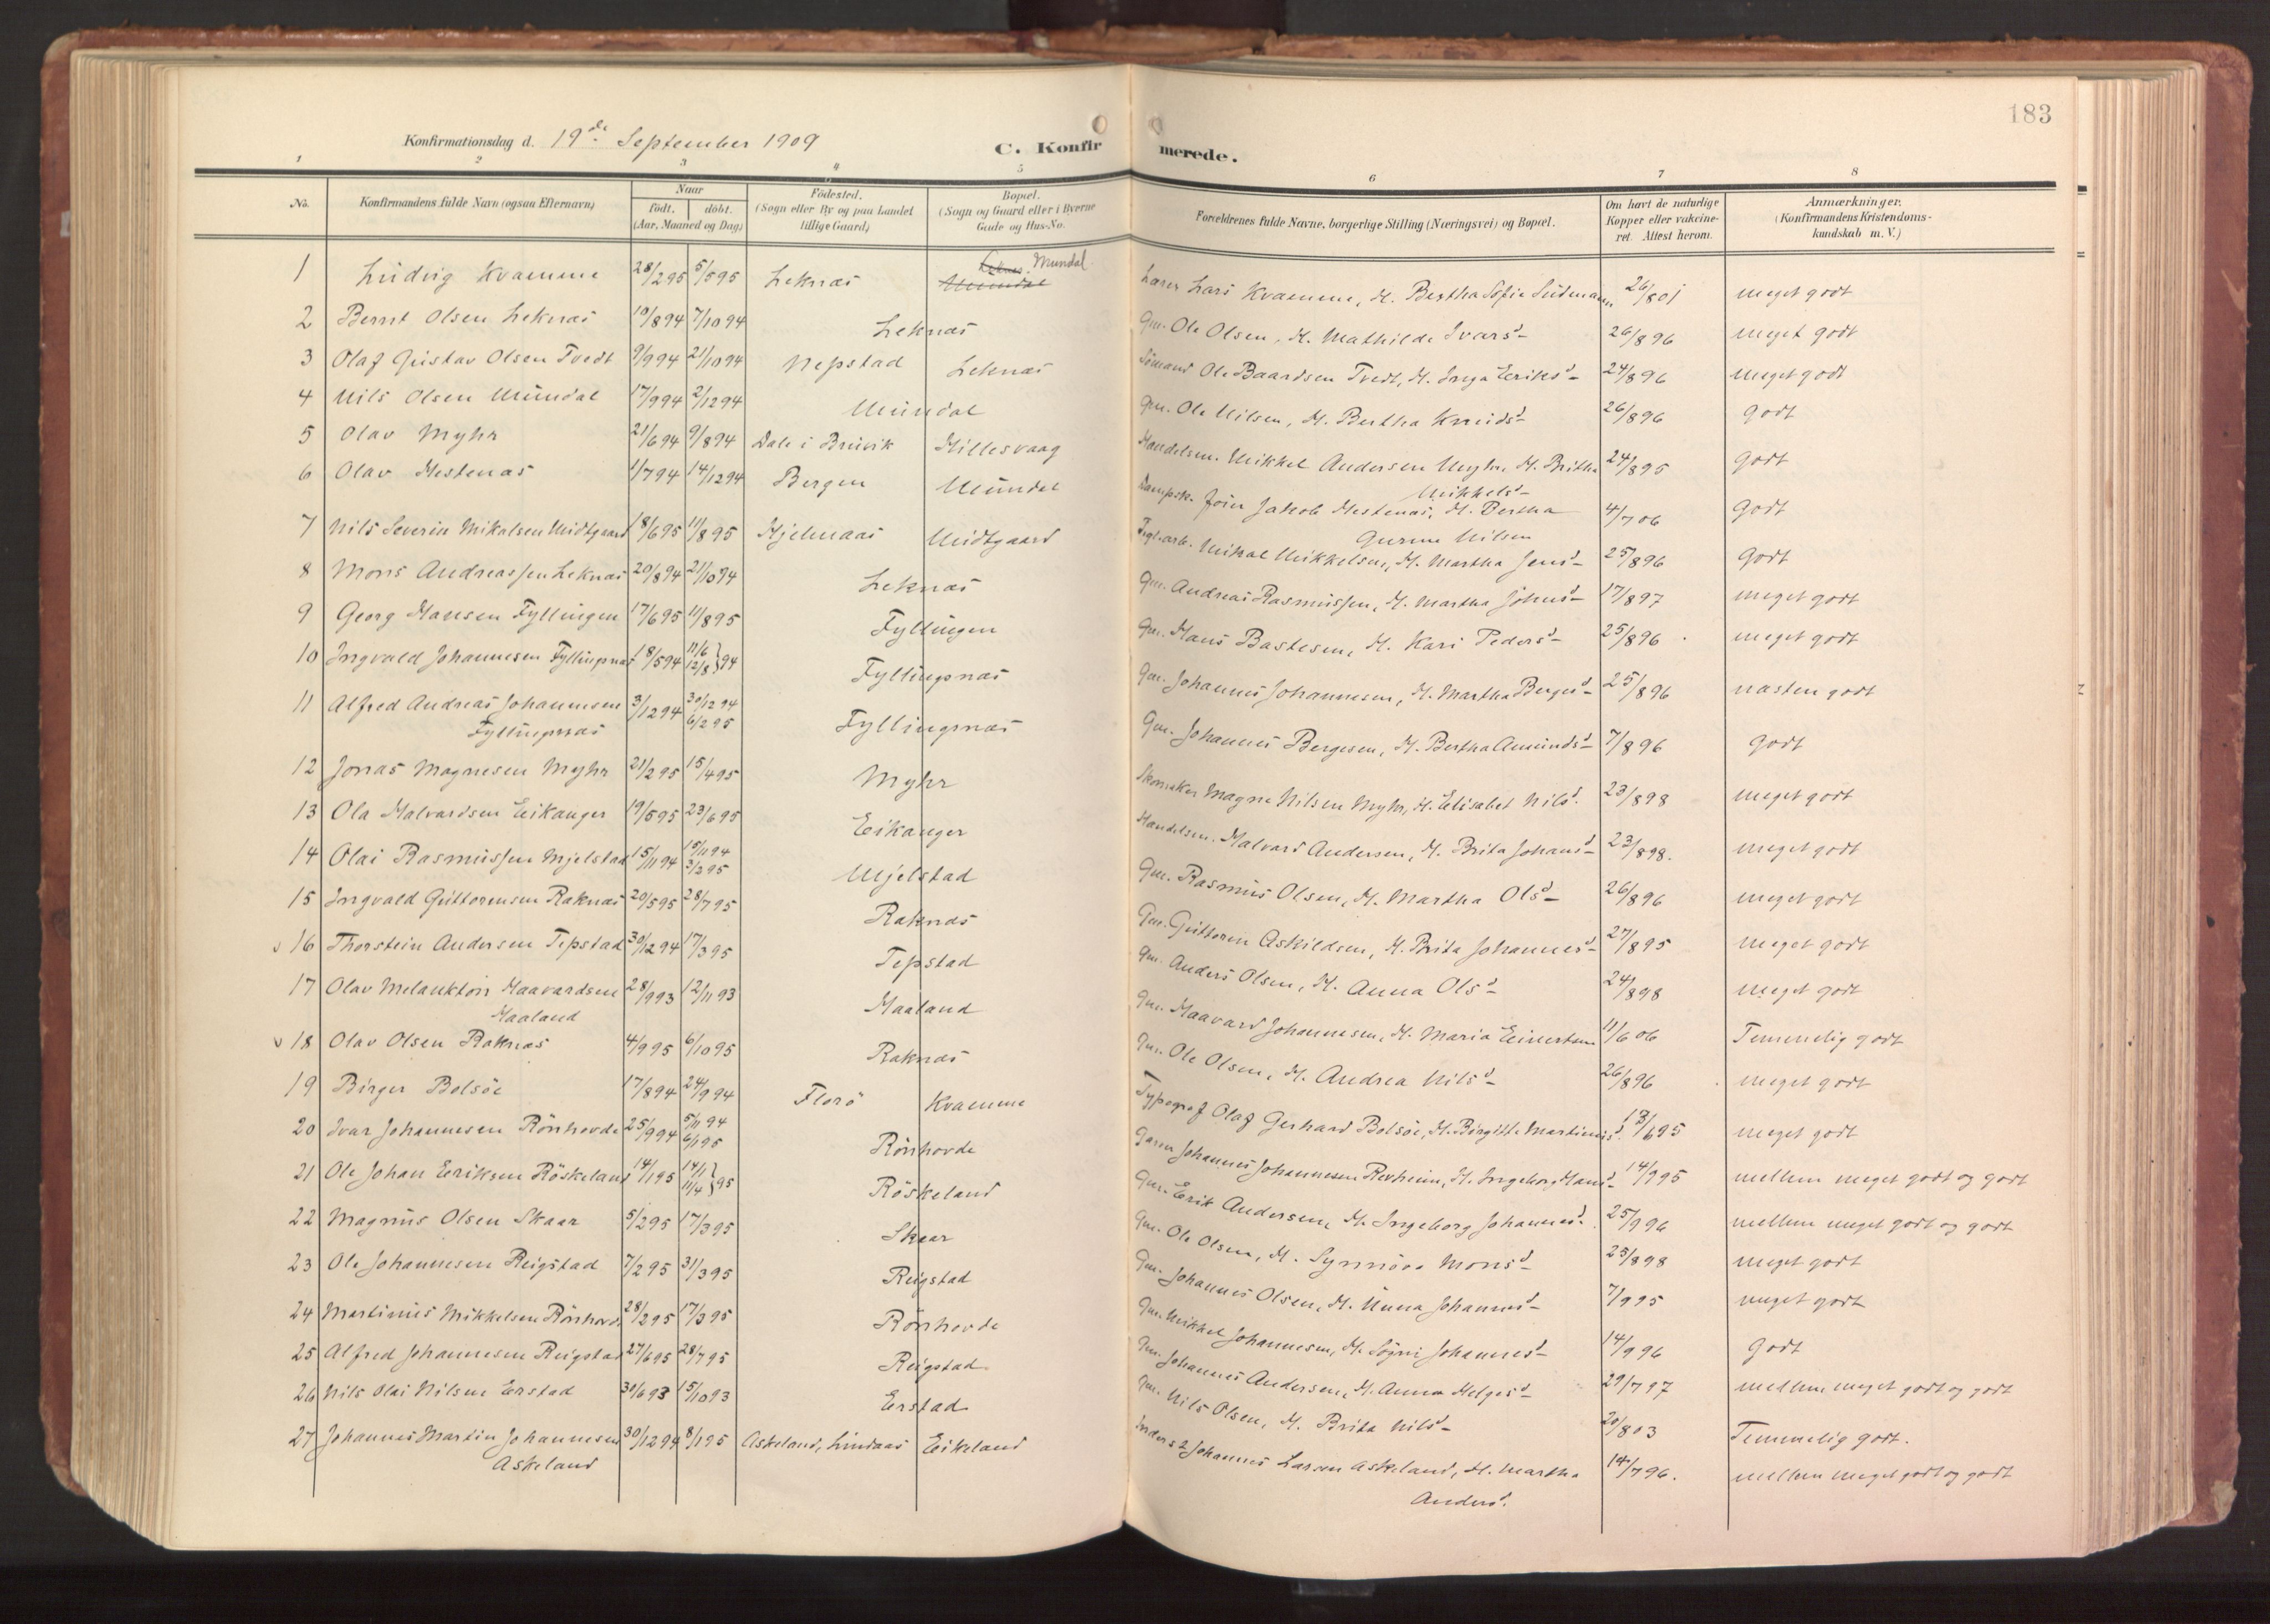 183
Konfirmationsdag d. 19de September 1909
C. Konfir merede.
1 2 3 4 5 6 7 8
No. Konfirmandens fulde Navn (ogsaa Efternavn) Naar født. døbt. (Aar, Maaned og Dag) Födested. (Sogn eller By og paa Landet tillige Gaard) Bopæl. (Sogn og Gaard eller i Byerne Gade og Hus-No. Forældrenes fulde Navne, borgerlige Stilling (Næringsvei) og Bopæl. Om havt de naturlige Kopper eller vakcineret. Attest herom. Anmærkninger. (Konfirmandens Kristendomskundskab m. V.)
1 Ludvig Kvamme 28/2 95 5/5 95 Leknæs Mundal Lærer Lars Kvamme, H. Bertha Sofie 26/8 01 meget godt
2 Bernt Olsen Leknæs 10/8 94 7/10 94 Leknæs Gm. Ole Olsen, H. Mathilde Ivarsd 26/8 96 meget godt
3 Olaf Gustav Olsen Tvedt 9/9 94 21/10 94 Nepstad Leknæs Sömand Ole Baardsen Tvedt, H. Inga Eriksd 24/8 96 meget godt
4 Nils Olsen Mundal 17/9 94 2/12 94 Mundal Gm. Ole Nilsen, H. Bertha Knudsd 26/8 96 godt
5 Olav Myhr 21/6 94 9/8 94 Dale i Bruvik Hillesvaag Handelsm. Mikkel Andersen Myhr, H. Britha Mikkelsd 24/8 95 godt
6 Olav Hestenæs 1/7 94 14/12 94 Bergen Mundal Dampsk. Jakob Hestenæs, H. Bertha Gurine Nilsen 4/7 06 Godt
7 Nils Severin Mikalsen Midtgaard 18/6 95 11/8 95 Hjelmaas Midtgaard Tegl.arb. Mikal Mikkelsen, H. Martha Jensd 25/8 96 Godt
8 Mons Andreassen Leknæs 20/8 94 21/10 94 Leknæs Gm. Andreas Rasmussen, H. Martha Johnsd 17/8 97 meget godt
9 Georg Hansen Fyllingen 17/6 95 11/8 95 Fyllingen Gm. Hans Bastesen, H. Kari Pedersd 25/8 96 meget godt
10 Ingvald Johannesen Fyllingsnæs 18/5 94 11/6 12/8 } 94 Fyllingsnæs Gm. Johannes Johannesen, H. Martha Bergesd 25/8 96 næsten godt
11 Alfred Andreas Johannesen Fyllingsnæs 3/12 94 30/12 94 6/2 95 Fyllingsnæs Gm. Johannes Bergesen, H. Bertha Amundsd 7/8 96 godt
12 Jonas Magnesen Myhr 21/2 95 15/4 95 Myhr Skomaker Magne Nilsen Myhr, H. Elisabet Nilsd. 23/8 98 meget godt
13 Ola Halvardsen Eikanger 19/5 95 23/6 95 Eikanger Handelsm. Halvard Andersen, H. Brita Johansd 23/8 98. meget godt
14 Olai Rasmussen Mjelstad 15/11 94 15/11 94 3/2 95 Mjelstad Gm. Rasmus Olsen, H. Martha Olsd 26/8 96 meget godt
15 Ingvald Guttormsen Raknæs 20/5 95 28/7 95 Raknæs Gm. Guttorm Askildsen, H. Brita Johannesd 27/8 95 meget godt
v 16 Thorstein Andersen Tepstad 30/12 94 17/3 95 Tepstad Gm. Anders Olsen, H. Anna Olsd 24/8 98 meget godt
17 Olav Melankton Haavardsen Haaland 28/9 93 12/11 93 Haaland Gm. Haavard Johannesen, H. Maria Einertsen 11/6 06 Temmelig godt
v 18 Olav Olsen Raknæs 4/9 95 6/10 95 Raknæs Gm. Ole Olsen, H. Andrea Nilsd 26/8 96 meget godt
19 Birger Bolsöe 17/8 94 24/9 94 Florö Kvamme Typograf Olaf Gerhard Bolsöe, H. Birgitte Martinusd. 13/6 95 meget godt
20 Ivar Johannesen Rönhovde 25/9 94 5/11 94 6/1 95 Rönhovde Gaarm Johannes Johannesen, H. Ingeborg Hansd 14/9 95 mellem meget godt og godt
21 Ole Johan Eriksen Röskeland 14/1 95 14/1 11/4 } 95 Röskeland Gm. Erik Andersen, H. Ingeborg Johannesd. 25/9 96 mellem meget godt og godt
22 Magnus Olsen Skaar 5/2 95 17/3 95 Skaar Gm. Ole Olsen, H. Synnöva Monsd 23/8 98 meget godt
23 Ole Johannesen Reigstad 7/2 95 31/3 95 Reigstad Gm. Johannes Olsen, H. Unna Johannesd 7/9 95 meget godt
24 Martinus Mikkelsen Rönhovde 28/2 95 17/3 95 Rönhovde Gm. Mikkel Johannesen, H. Sögni Johannesd 14/9 96 Godt
25 Alfred Johannesen Reigstad 27/6 95 28/7 95 Reigstad Gm. Johannes Andersen, H. Anna Helgesd 29/7 97 mellem meget godt og godt
26 Nils Olai Nilsen Erstad 30/6 93 15/10 93 Erstad Gm. Nils Olsen, H. Brita Nilsd 20/8 03 Temmelig godt.
27 Johannes Martin Johannesen Askeland 30/12 94 8/1 95 Askeland, Lindaas Eikeland Inderst Johannes Larsen Askeland, H. Martha Andersd. 14/7 96. mellem meget godt og godt